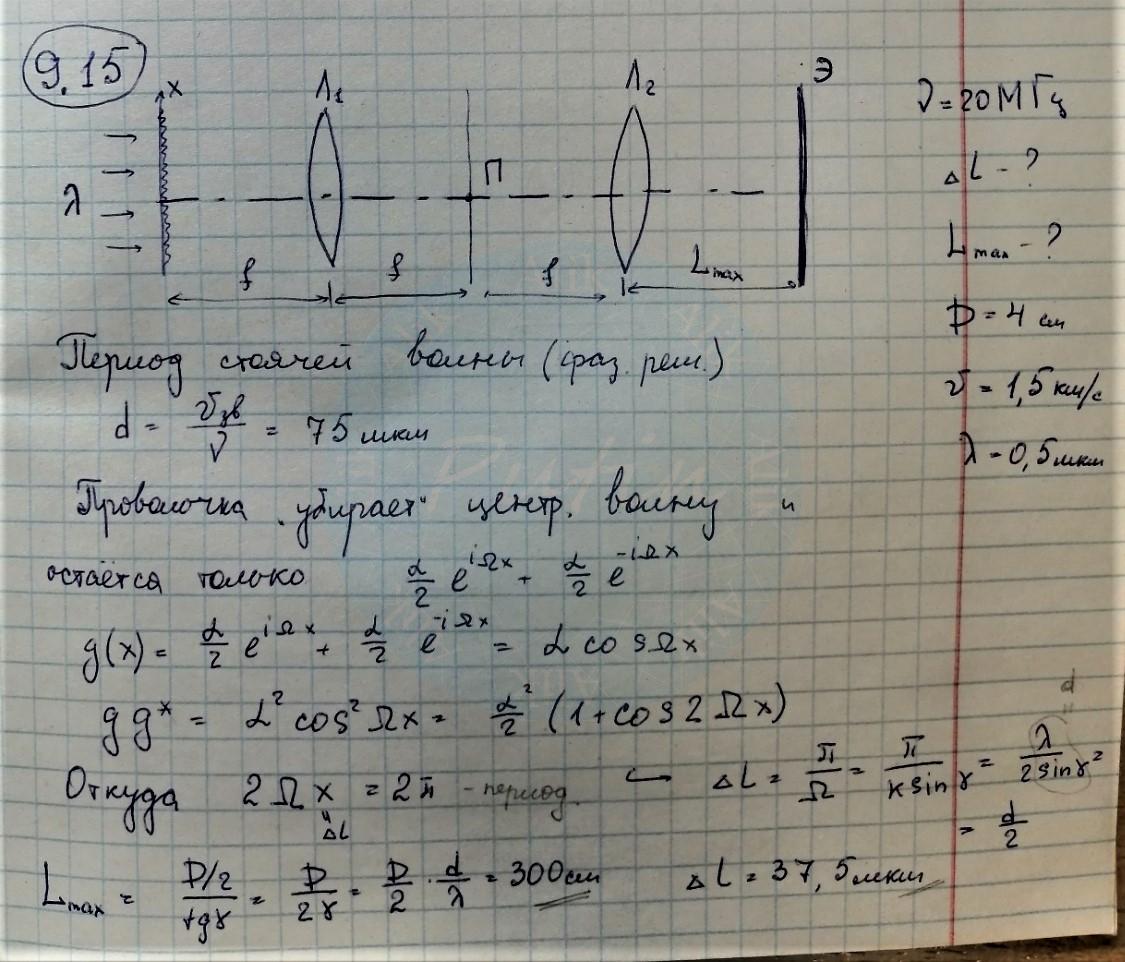 9.15
x Л₁ Л₂ Э
λ П
f f f L_max
ν = 20 МГц
ΔL - ?
L_max - ?
D = 4 см
v = 1,5 км/с
λ - 0,5 мкм
Период стоячей волны (фаз. реш.)
d = v_зв / ν = 75 мкм
Проволочка "убирает" центр. волну и
остаётся только α/2 e^{iΩx} + α/2 e^{-iΩx}
g(x) = α/2 e^{iΩx} + α/2 e^{-iΩx} = α cos Ωx
g g* = α² cos² Ωx = α²/2 (1 + cos 2Ωx)
Откуда 2Ωx = 2π - период. ↪ ΔL = π/Ω = π/(k sin γ) = λ/(2 sin γ) =
ΔL
= d
= d/2
L_max = (D/2)/(tg γ) = D/(2γ) = D/2 · d/λ = 300 см ΔL = 37,5 мкм